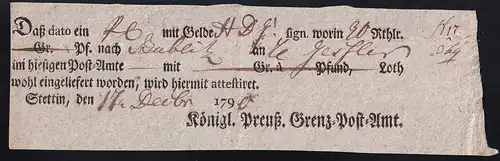 Daß dato ein mit Gelde H D J! sign. worin 90 Rthlr. N 17.
Gr. Pf. nach an
im hiesigen Post-Amte mit Gr. à Pfund, Loth
wohl eingeliefert worden, wird hiermit attestiret.
Stettin, den 17 Decbr 1790
Königl. Preuß. Grenz-Post-Amt.